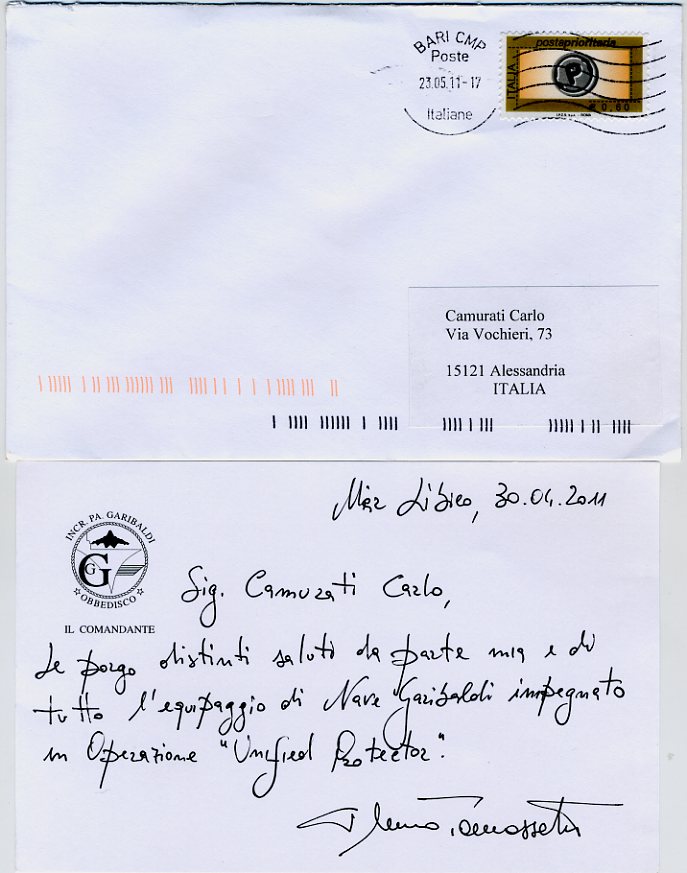 BARI CMP
Poste
23.05.11-17
Italiane
postaprioritaria
ITALIA
P
€ 0,60
Camurati Carlo
Via Vochieri, 73
15121 Alessandria
ITALIA
Mar Libico, 30.04.2011
INCR. PA. GARIBALDI
G
G
OBBEDISCO
IL COMANDANTE
Sig. Camurati Carlo,
Le porgo distinti saluti da parte mia e di
tutto l'equipaggio di Nave Garibaldi impegnato
in Operazione "Unified Protector".